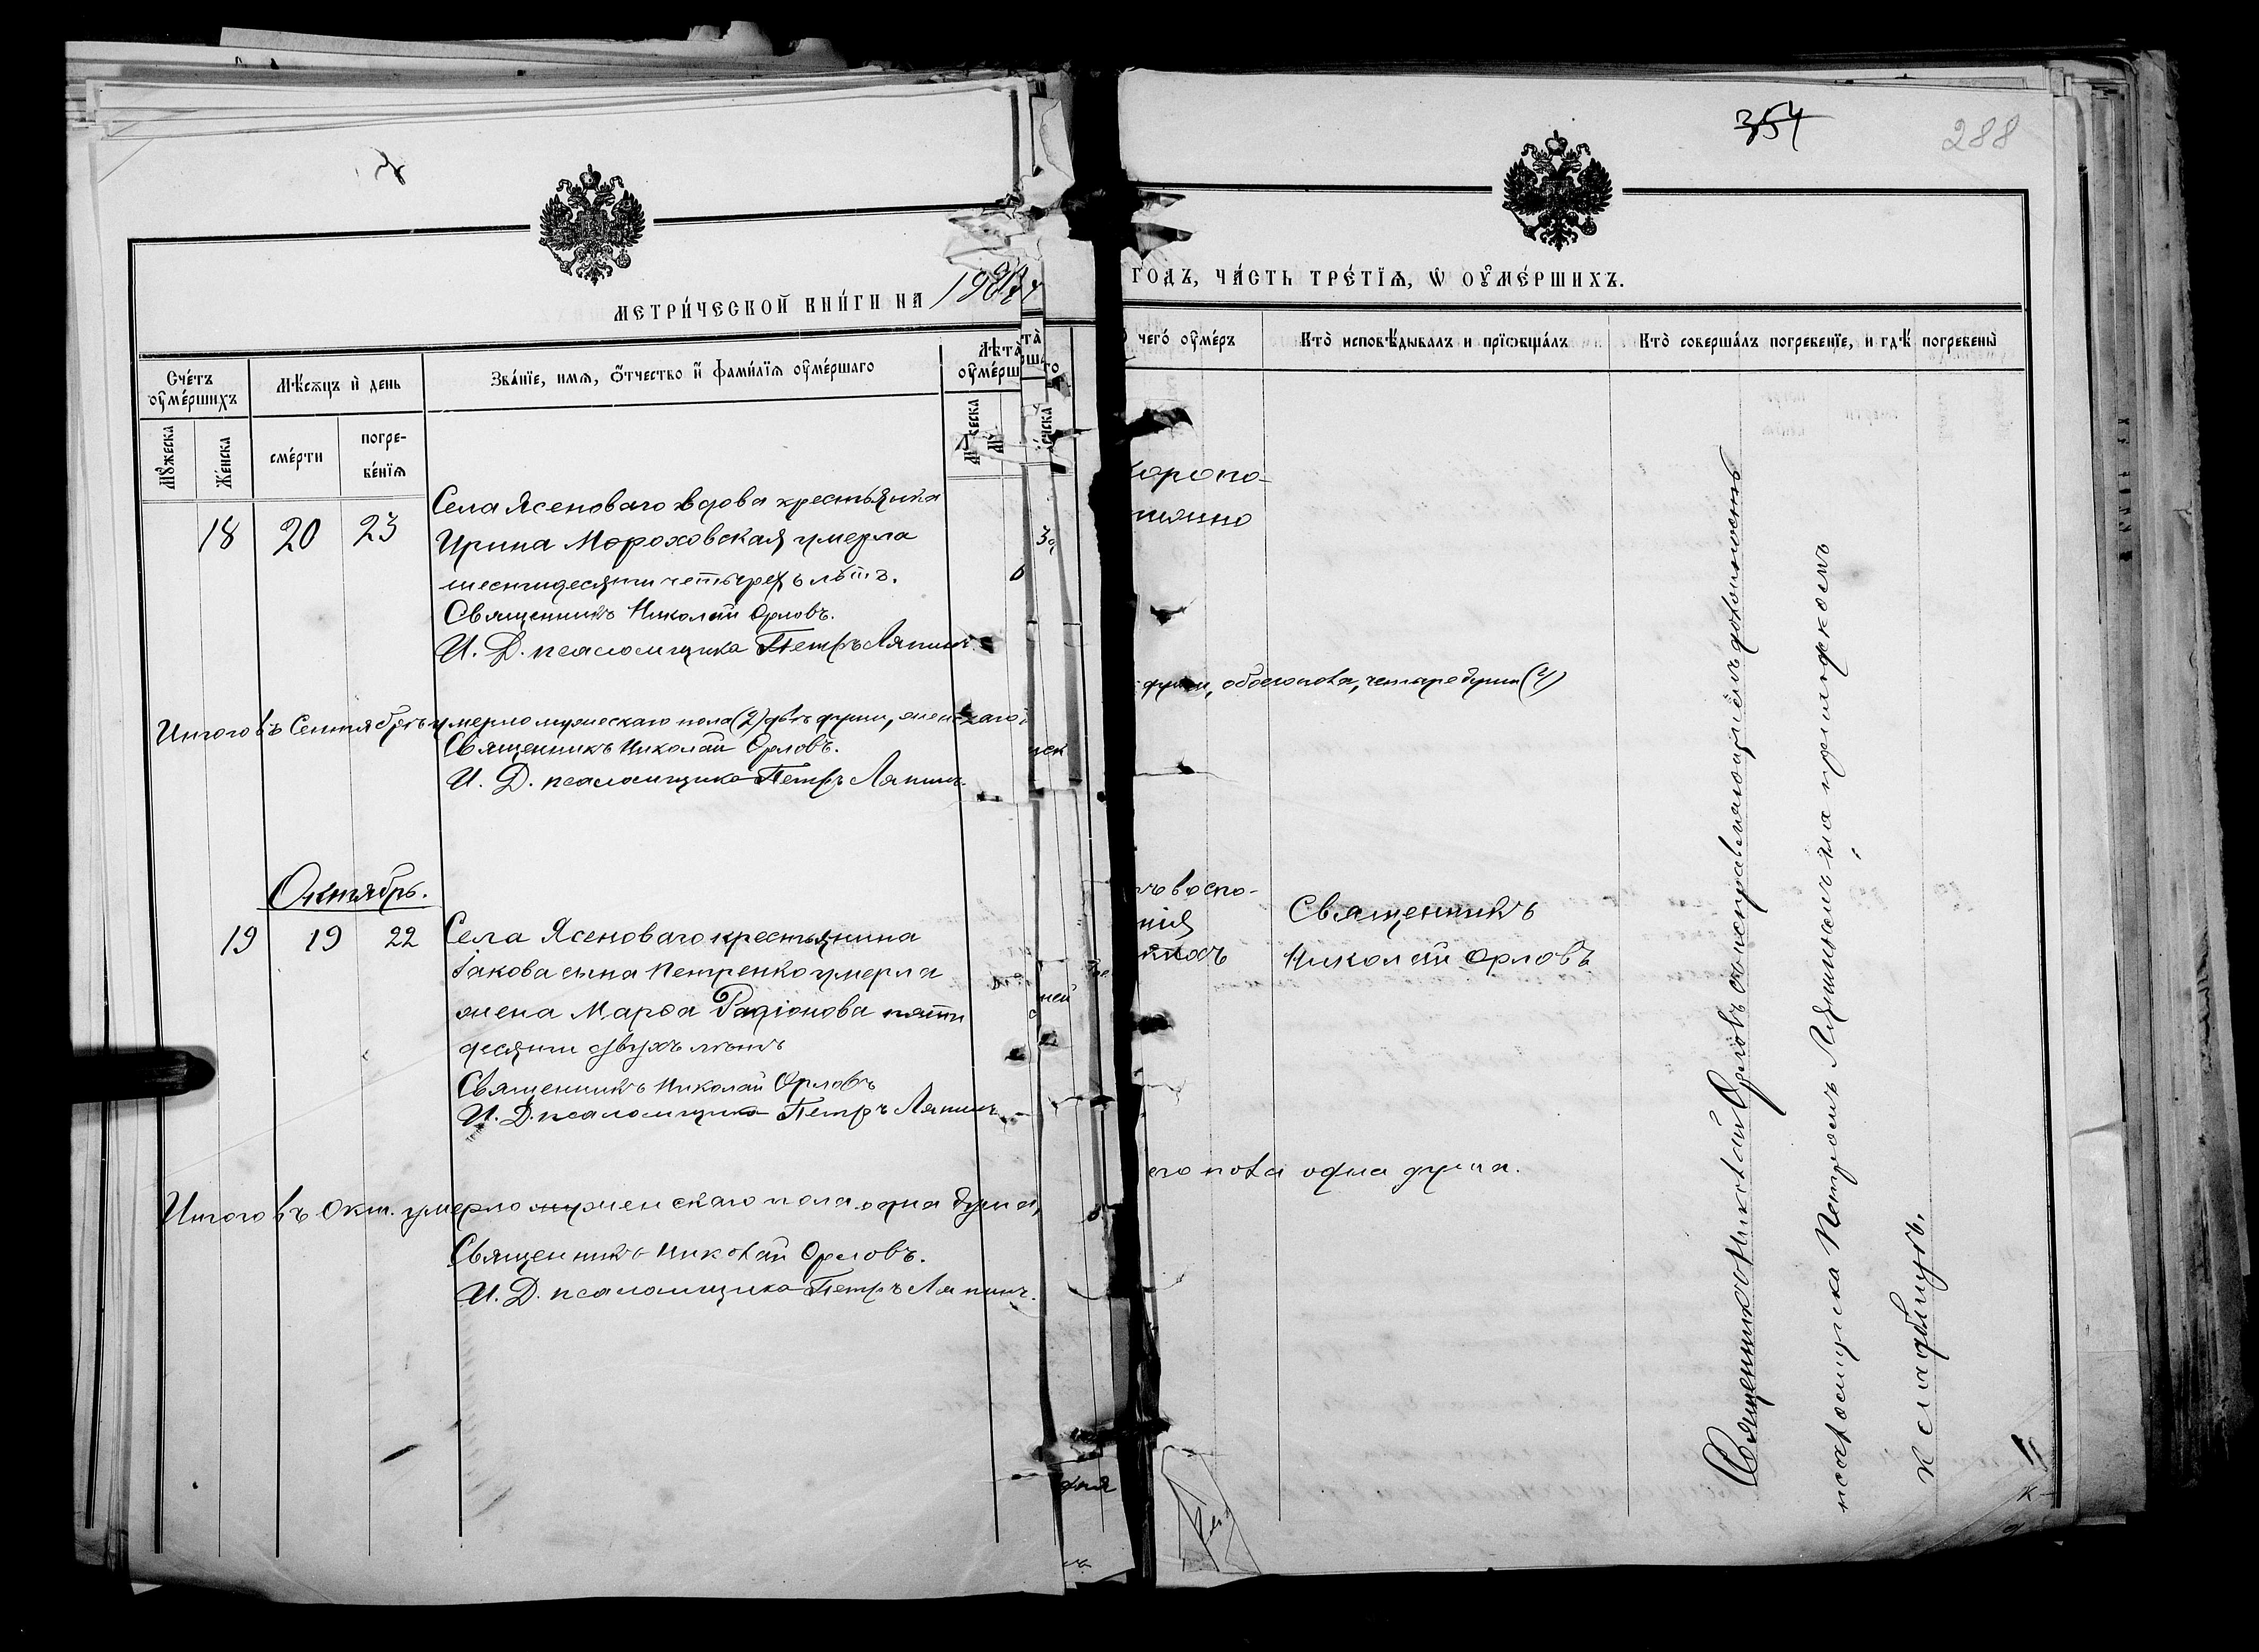 354
288
МЕТРИ́ЧЕСКОЙ КНИ́ГИ НА
ГОДЪ, ЧА́СТЬ ТРЕ́ТІѦ, Ѡ ОУМЕ́РШИХЪ.
Сче́тъ оуме́ршихъ
Мѣ́сѧцъ и҆ день
Зва́нїе, имѧ, ѻ҆́тчество и҆ фами́лїѧ оуме́ршаго
Лѣта̀ оуме́рш
чегѡ́ оуме́ръ
Кто̀ исповѣ́дывалъ и прїѡбща́лъ
Кто̀ соверша́лъ погребенїе, и гдѣ̀ погребены̀
Мꙋ́жеска
Же́нска
сме́рти
погре-
бе́нїѧ
Села Ясеноваго вдова крестьянка
18 20 23 Ирина Мороховская умерла
шестидесяти четырехъ лѣтъ.
Священникъ Николай Орловъ.
И. Д. псаломщика Петръ Ляпинъ.
Итого въ Сентябрѣ умерло мужескаго пола (2) двѣ души, женскаго
души, обоего пола, четыре души (4)
Священникъ Николай Орловъ.
И. Д. псаломщика Петръ Ляпинъ.
Октябрь.
19 19 22 Села Ясеноваго крестьянина
Іакова сына Петренко умерла
жена Марѳа Радіонова пяти
десяти двухъ лѣтъ
Священникъ Николай Орловъ
И. Д. псаломщика Петръ Ляпинъ
Священникъ
Николай Орловъ
Итого въ Окт. умерло женскаго пола одна душа,
его пола одна душа.
Священникъ Николай Орловъ.
И. Д. псаломщика Петръ Ляпинъ.
Священникъ Николай Орловъ съ исправляющимъ должность
псаломщика Петромъ Ляпинымъ на приходскомъ
кладбищѣ.